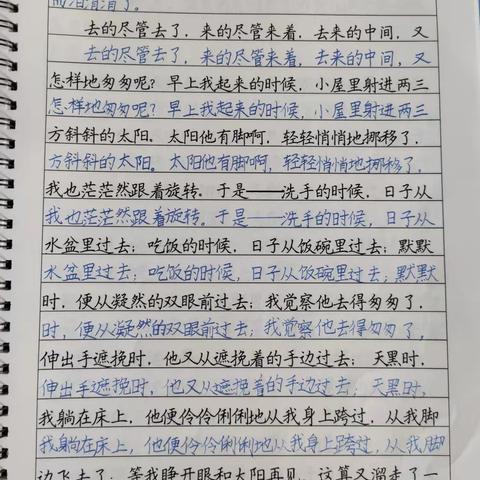 而泪潸潸了.
去的尽管去了，来的尽管来着，去来的中间，又
去的尽管去了，来的尽管来着，去来的中间，又
怎样地匆匆呢？早上我起来的时候，小屋里射进两三
怎样地匆匆呢？早上我起来的时候，小屋里射进两三
方斜斜的太阳。太阳他有脚啊，轻轻悄悄地挪移了，
方斜斜的太阳。太阳他有脚啊，轻轻悄悄地挪移了，
我也茫茫然跟着旋转。于是——洗手的时候，日子从
我也茫茫然跟着旋转。于是——洗手的时候，日子从
水盆里过去；吃饭的时候，日子从饭碗里过去；默默
水盆里过去；吃饭的时候，日子从饭碗里过去；默默
时，便从凝然的双眼前过去；我觉察他去得匆匆了，
时，便从凝然的双眼前过去；我觉察他去得匆匆了，
伸出手遮挽时，他又从遮挽着的手边过去；天黑时，
伸出手遮挽时，他又从遮挽着的手边过去；天黑时，
我躺在床上，他便伶伶俐俐地从我身上跨过，从我脚
我躺在床上，他便伶伶俐俐地从我身上跨过，从我脚
边飞去了。等我睁开眼和太阳再见，这算又溜走了一